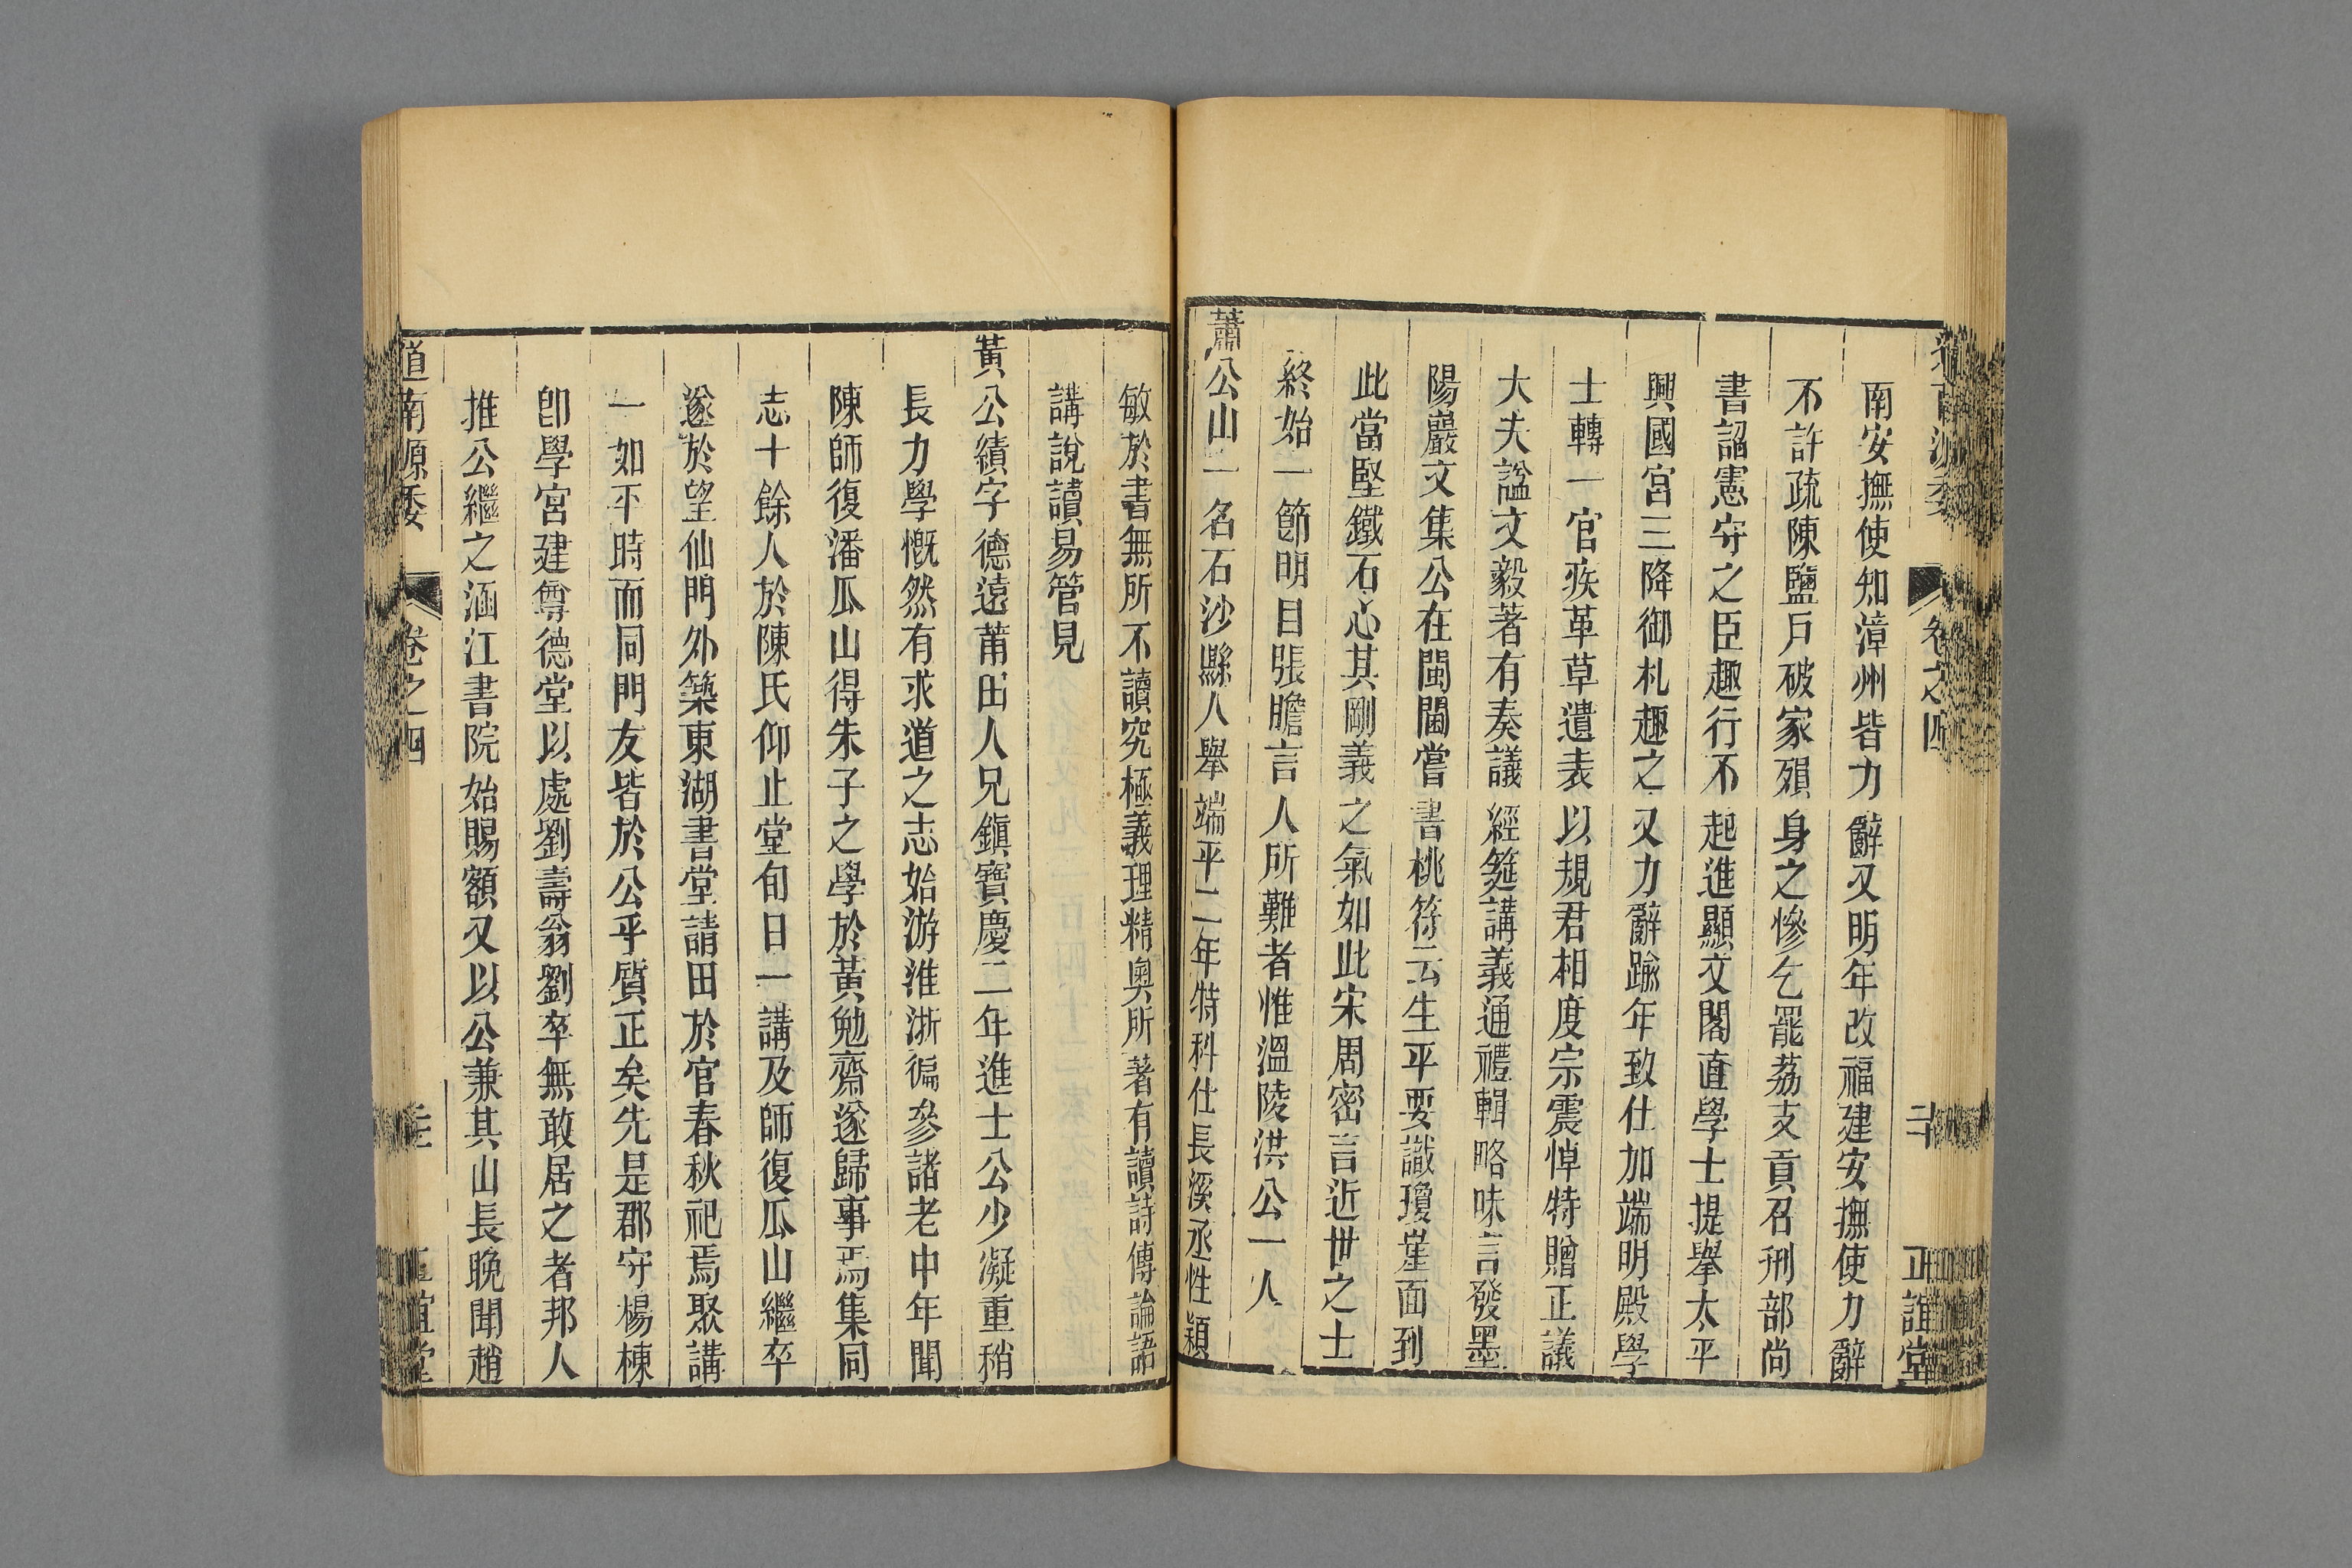 南安撫使知漳州皆力辭又明年改福建安撫使力辭
不許疏陳鹽戶破家殞身之慘乞罷荔支貢召刑部尚
書詔憲守之臣趣行不起進顯文閣直學士提舉太平
興國宮三降御札趣之又力辭踰年致仕加端明殿學
士轉一官疾革草遺表以規君相度宗震悼特贈正議
大夫諡文毅著有奏議經筵講義通禮輯略味言發墨
陽巖文集公在閩閫嘗書桃符云生平要識瓊崖面到
此當堅鐵石心其剛義之氣如此宋周密言近世之士
終始一節明目張膽言人所難者惟溫陵洪公一人
蕭公山一名石沙縣人舉端平二年特科仕長溪丞性穎
敏於書無所不讀究極義理精奧所著有讀詩傳論語
講說讀易管見
黃公績字德遠莆田人兄鎭寶慶二年進士公少凝重稍
長力學慨然有求道之志始游淮浙徧參諸老中年聞
陳師復潘瓜山得朱子之學於黃勉齋遂歸事焉集同
志十餘人於陳氏仰止堂旬日一講及師復瓜山繼卒
遂於望仙門外築東湖書堂請田於官春秋祀焉聚講
一如平時而同門友皆於公乎質正矣先是郡守楊棟
卽學宮建尊德堂以處劉壽翁劉卒無敢居之者邦人
推公繼之涵江書院始賜額又以公兼其山長晚聞趙
道南源委 卷之四 正誼堂